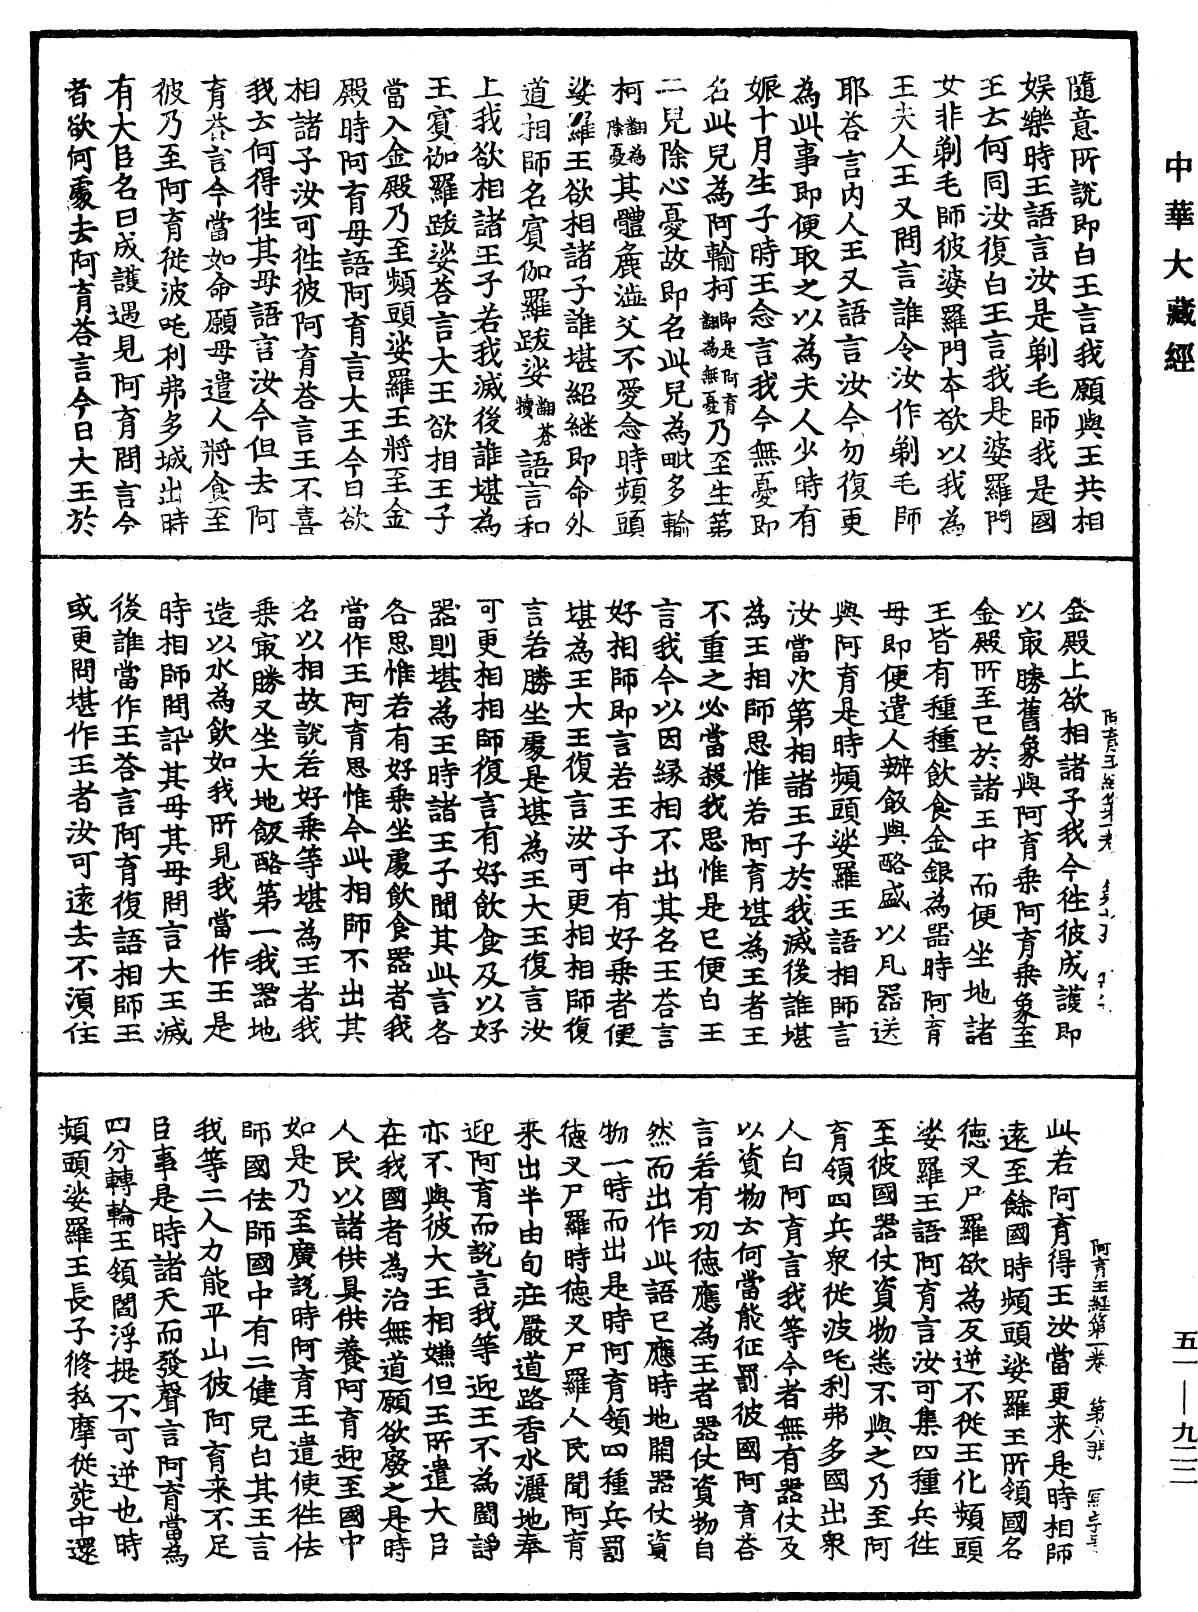 中華大藏經
隨意所說即白王言我願與王共相
娛樂時王語言汝是剃毛師我是國
王云何同汝復白王言我是婆羅門
女非剃毛師彼婆羅門本欲以我為
王夫人王又問言誰令汝作剃毛師
耶荅言內人王又語言汝今勿復更
為此事即便取之以為夫人少時有
娠十月生子時王念言我今無憂即
名此兒為阿輸柯即是阿育翻為無憂乃至生第
二兒除心憂故即名此兒為毗多輸
柯翻為除憂其體麁澁父不愛念時頻頭
娑羅王欲相諸子誰堪紹継即命外
道相師名賓伽羅跋娑翻蒼犢語言和
上我欲相諸王子若我滅後誰堪為
王賓伽羅跋娑荅言大王欲相王子
當入金殿乃至頻頭娑羅王將至金
殿時阿育母語阿育言大王今日欲
相諸子汝可徃彼阿育荅言王不喜
我云何得徃其母語言汝今但去阿
育荅言今當如命願母遣人將食至
彼乃至阿育從波吒利弗多城出時
有大臣名曰成護遇見阿育問言今
者欲何處去阿育荅言今日大王於
金殿上欲相諸子我今徃彼成護即
以㝡勝舊象與阿育乘阿育乘象至
金殿所至已於諸王中而便坐地諸
王皆有種種飲食金銀為器時阿育
母即便遣人辦飯與酪盛以凡器送
與阿育是時頻頭娑羅王語相師言
汝當次第相諸王子於我滅後誰堪
為王相師思惟若阿育堪為王者王
不重之必當殺我思惟是已便白王
言我今以因縁相不出其名王荅言
好相師即言若王子中有好乘者便
堪為王大王復言汝可更相相師復
言若勝坐處是堪為王大王復言汝
可更相相師復言有好飲食及以好
器則堪為王時諸王子聞其此言各
各思惟若有好乘坐處飲食器者我
當作王阿育思惟今此相師不出其
名以相故說若好乘等堪為王者我
乘㝡勝又坐大地飯酪第一我器地
造以水為飲如我所見我當作王是
時相師問訊其母其母問言大王滅
後誰當作王荅言阿育復語相師王
或更問堪作王者汝可遠去不湏住
阿育王經第一卷 第七張
此若阿育得王汝當更来是時相師
遠至餘國時頻頭娑羅王所領國名
徳叉尸羅欲為反逆不從王化頻頭
娑羅王語阿育言汝可集四種兵徃
至彼國器仗資物悉不與之乃至阿
育領四兵衆從波吒利弗多國出衆
人白阿育言我等今者無有器仗及
以資物云何當能征罰彼國阿育荅
言若有功徳應為王者器仗資物自
然而出作此語已應時地開器仗資
物一時而出是時阿育領四種兵罰
徳叉尸羅時徳叉尸羅人民聞阿育
来出半由旬莊嚴道路香水灑地奉
迎阿育而說言我等迎王不為鬪諍
亦不與彼大王相嫌但王所遣大臣
在我國者為治無道願欲廢之是時
人民以諸供具供養阿育迎至國中
如是乃至廣說時阿育王遣使徃佉
師國佉師國中有二健兒白其王言
我等二人力能平山彼阿育来不足
臣事是時諸天而發聲言阿育當為
四分轉輪王領閻浮提不可逆也時
頻頭娑羅王長子修私摩從菀中還
阿育王經第一卷 第八張
五一—九二二